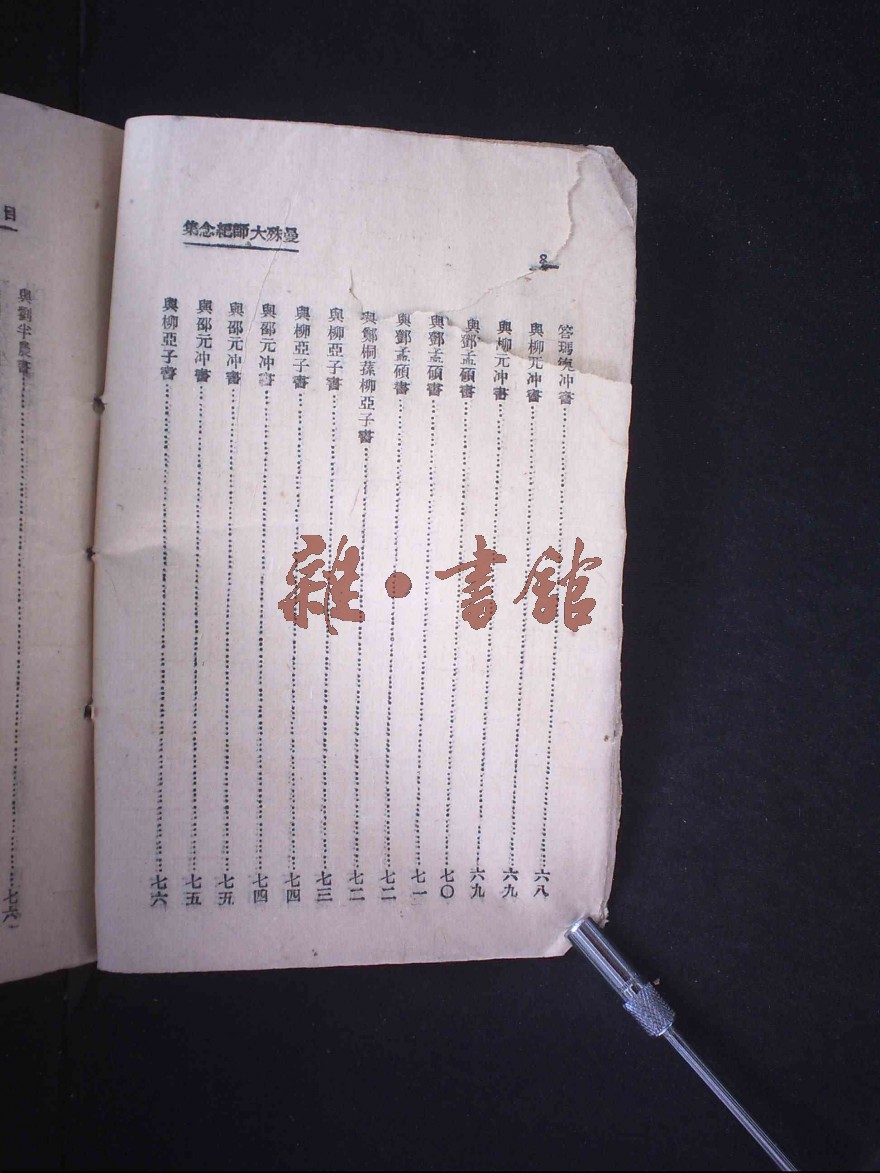 曼殊大師紀念集
8
答瑪冲書……六八
與柳元冲書……六九
與柳元冲書……六九
與鄧孟碩書……七〇
與鄧孟碩書……七一
與鄧孟碩書……七二
與鄭桐蓀柳亞子書……七二
與柳亞子書……七三
與柳亞子書……七四
與邵元冲書……七四
與邵元冲書……七五
與邵元冲書……七五
與柳亞子書……七六
目
與劉半農書……七六
雜·書館